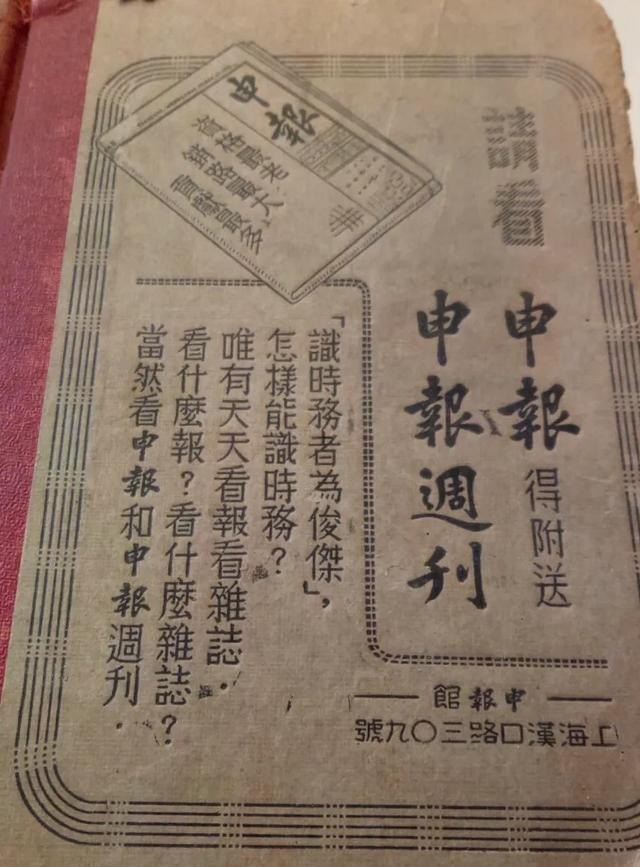 請看
申報得附送
申報週刊
申報
資格最老
銷路最大
貢獻最多
「識時務者為俊傑」，
怎樣能識時務？
唯有天天看報看雜誌．
看什麼報？看什麼雜誌？
當然看申報和申報週刊．
申報館
上海漢口路三〇九號